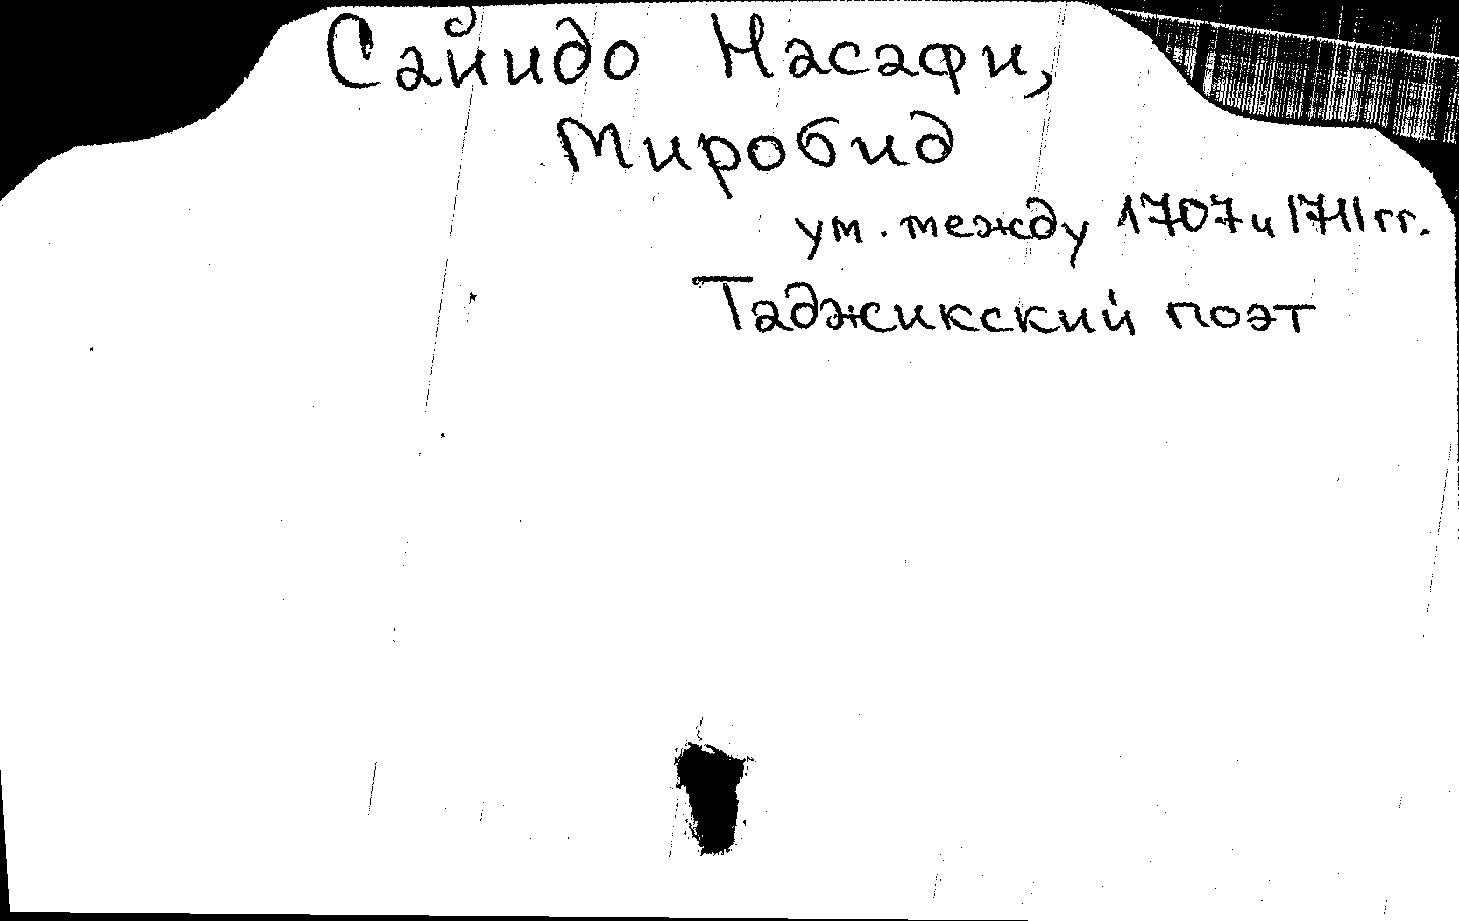 Сайидо Насафи,
Миробид
ум. между 1707 и 1711 гг.
Таджикский поэт